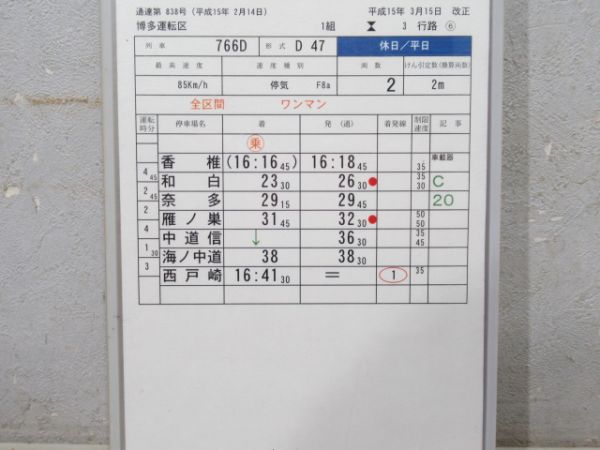 通達第 838号 (平成15年 2月14日) 平成15年 3月15日 改正
博多運転区 1組 3 行路 ⑥
列車 766D 形式 D 47 休日/平日
最高速度 速度種別 両数 けん引定数(換算両数)
85Km/h 停気 F8a 2 2m
全区間 ワンマン
運転時分 停車場名 着 発(通) 着発線 制限速度 記事
乗
香椎 (16:16 45) 16:18 45 35 車載器
4 45
和白 23 30 26 30 35 30 C
2 45
奈多 29 15 29 45 20
2
雁ノ巣 31 45 32 30 50 50
4
中道信 ↓ 36 30 35 45
1 30
海ノ中道 38 38 30
3
西戸崎 16:41 30 = 1 35